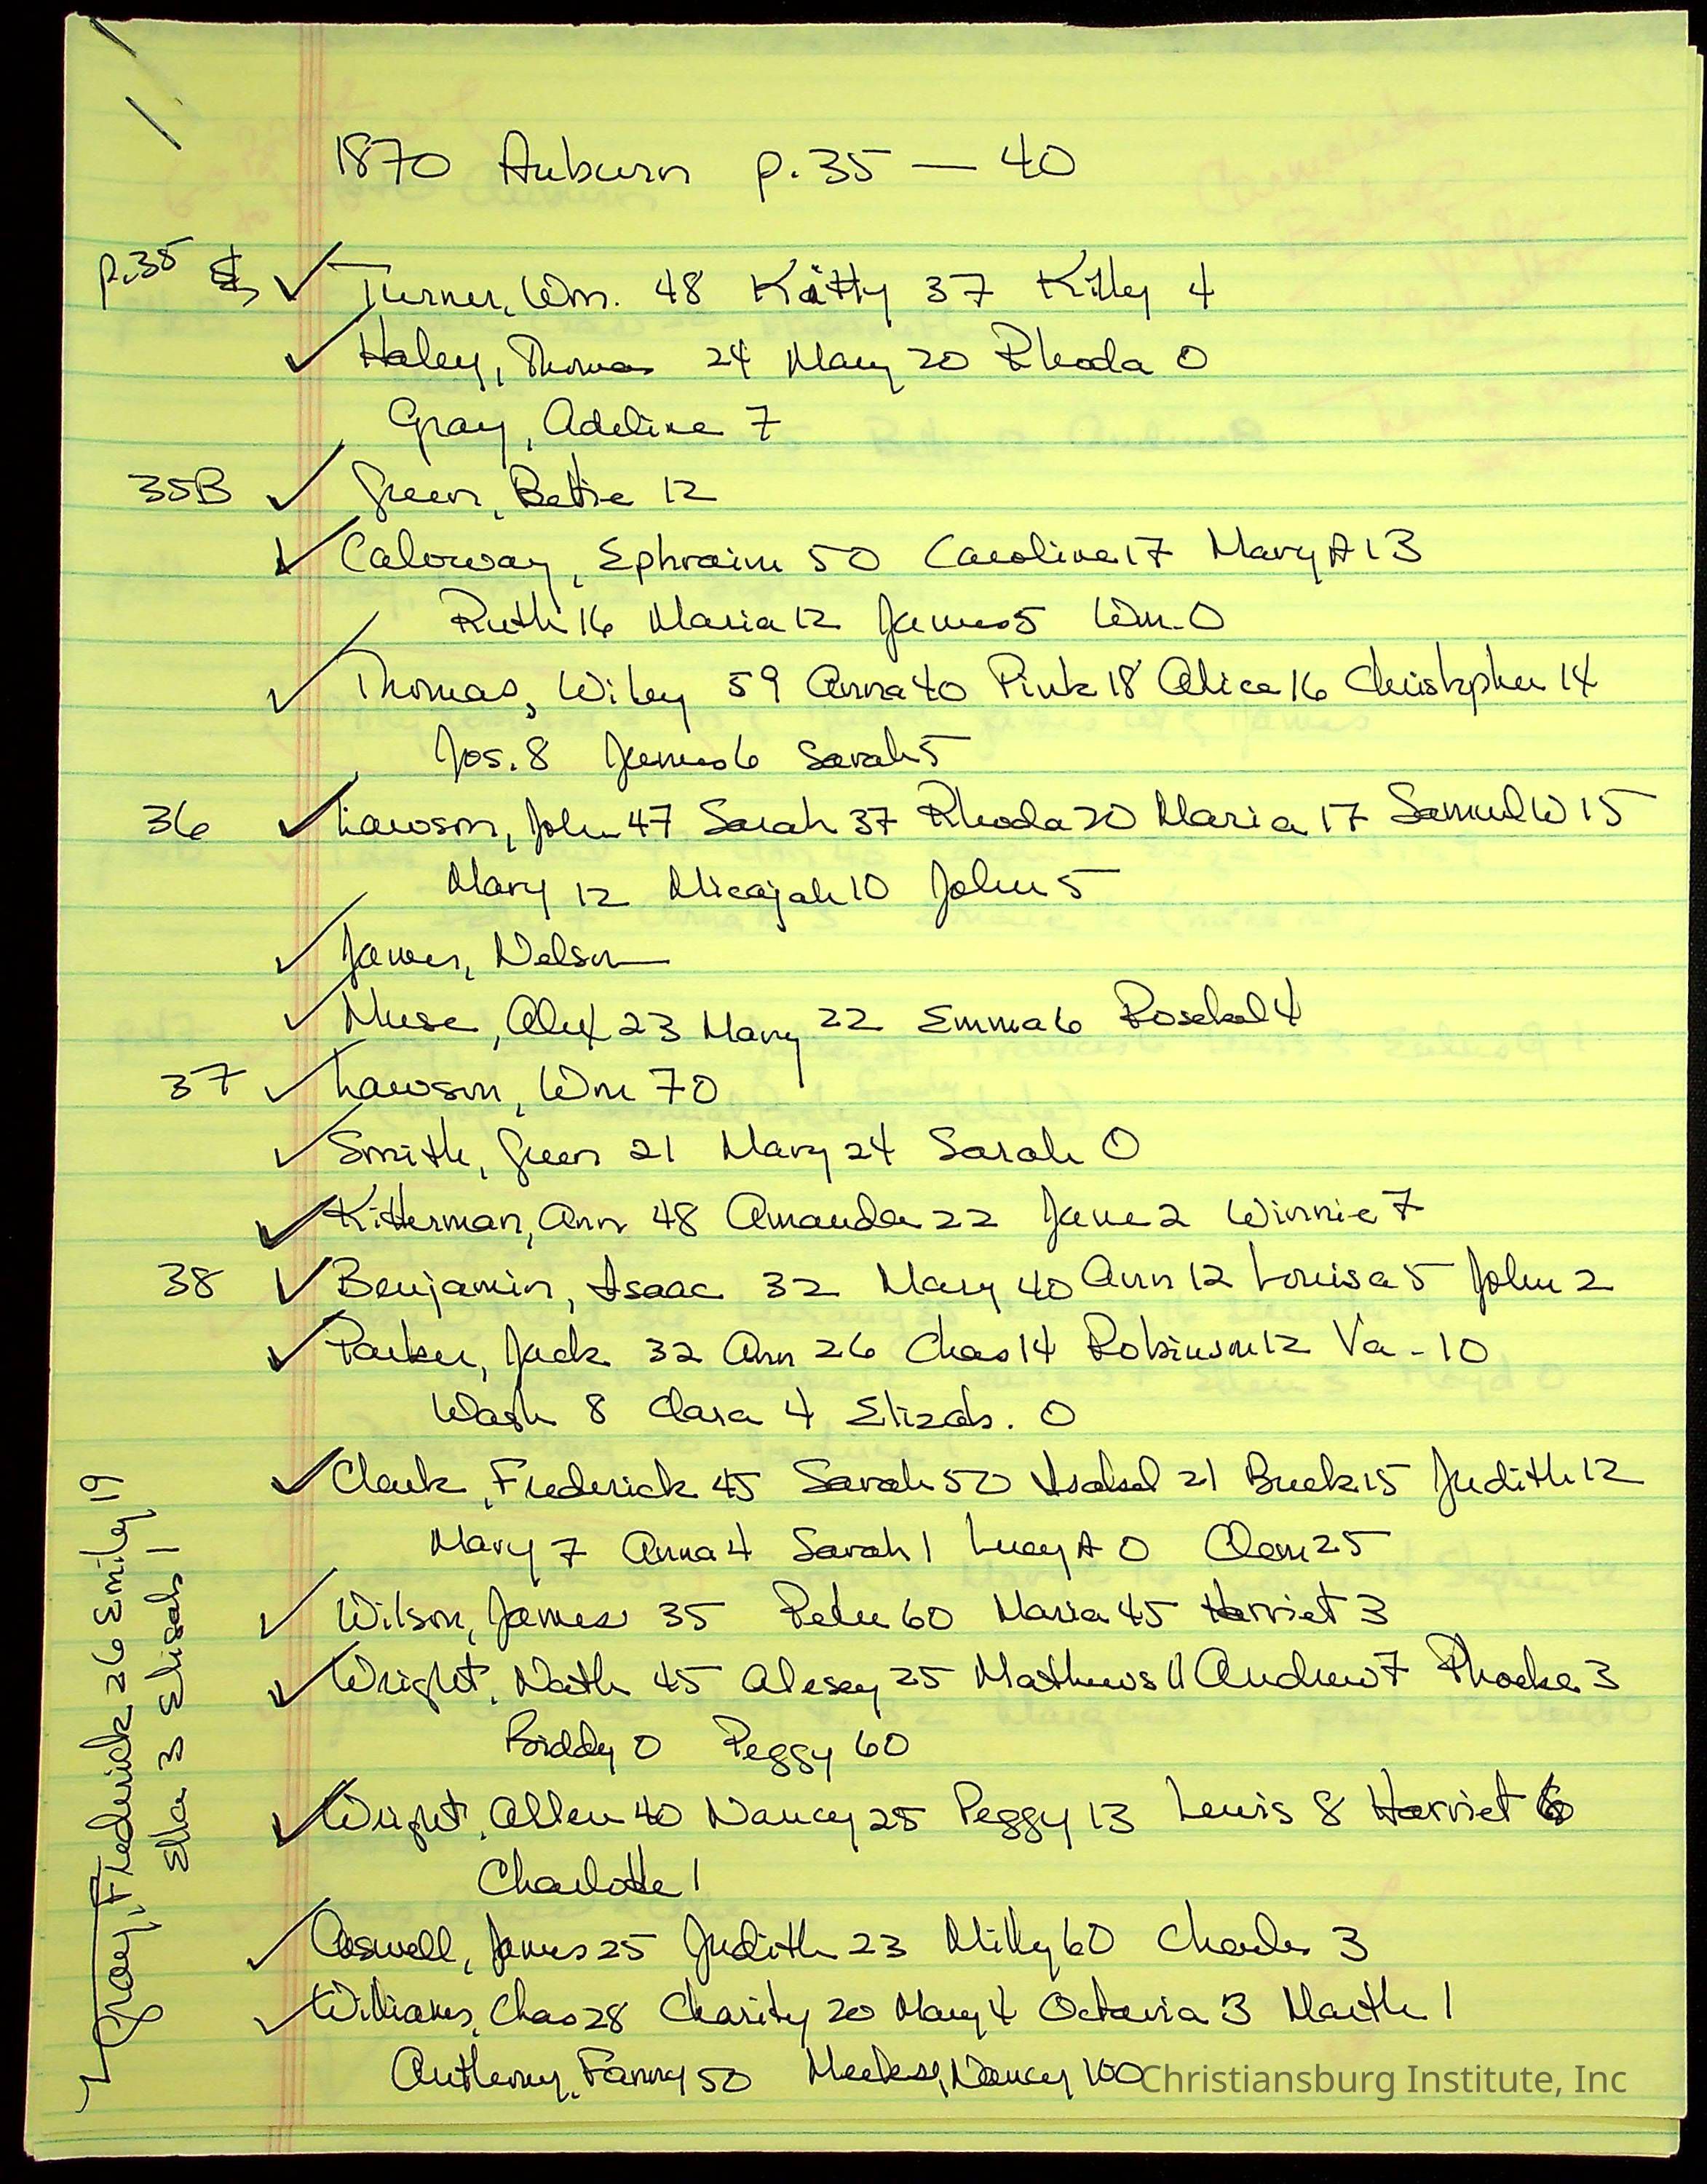 1870 Auburn p.35 — 40
p.35 ✓ Turner, Wm. 48 Kitty 37 Kitty 4
✓ Haley, Thomas 24 Mary 20 Rhoda 0
Gray, Adeline 7
35B ✓ Green, Bettie 12
✓ Caloway, Ephraim 50 Caroline 17 Mary A 13
Ruth 16 Maria 12 James 5 Wm. 0
✓ Thomas, Wiley 59 Anna 40 Pink 18 Alice 16 Christopher 14
Jos. 8 James 6 Sarah 5
36 ✓ Lawson, John 47 Sarah 37 Rhoda 20 Maria 17 Samuel W 15
Mary 12 Micajah 10 John 5
✓ James, Nelson —
✓ Muse, Alex 23 Mary 22 Emma 6 4
37 ✓ Lawson, Wm 70
✓ Smith, Green 21 Mary 24 Sarah 0
✓ Kitterman, Ann 48 Amanda 22 Jane 2 Winnie 7
38 ✓ Benjamin, Isaac 32 Mary 40 Ann 12 Louisa 5 John 2
✓ Parker, Jack 32 Ann 26 Chas 14 Robinson 12 Va - 10
Wash 8 Clara 4 Elizab. 0
✓ Clark, Frederick 45 Sarah 50 Isabel 21 Buck 15 Judith 12
Mary 7 Anna 4 Sarah 1 Lucy A 0 Clem 25
✓ Wilson, James 35 Peter 60 Maria 45 Harriet 3
✓ Wright, Nath 45 Alesey 25 Mathews 11 Andrew 7 Phoebe 3
Biddy 0 Peggy 60
✓ Wright, Allen 40 Nancy 25 Peggy 13 Lewis 8 Harriet 6
Charlotte 1
✓ Caswell, James 25 Judith 23 Milly 60 Charles 3
✓ Williams, Chas 28 Charity 20 Mary 4 Octavia 3 Marth 1
Anthony, Fanny 50 Meeks, Nancy 100
Gray, Frederick 26 Emily 19
Ella 3 Elizab 1
Christiansburg Institute, Inc